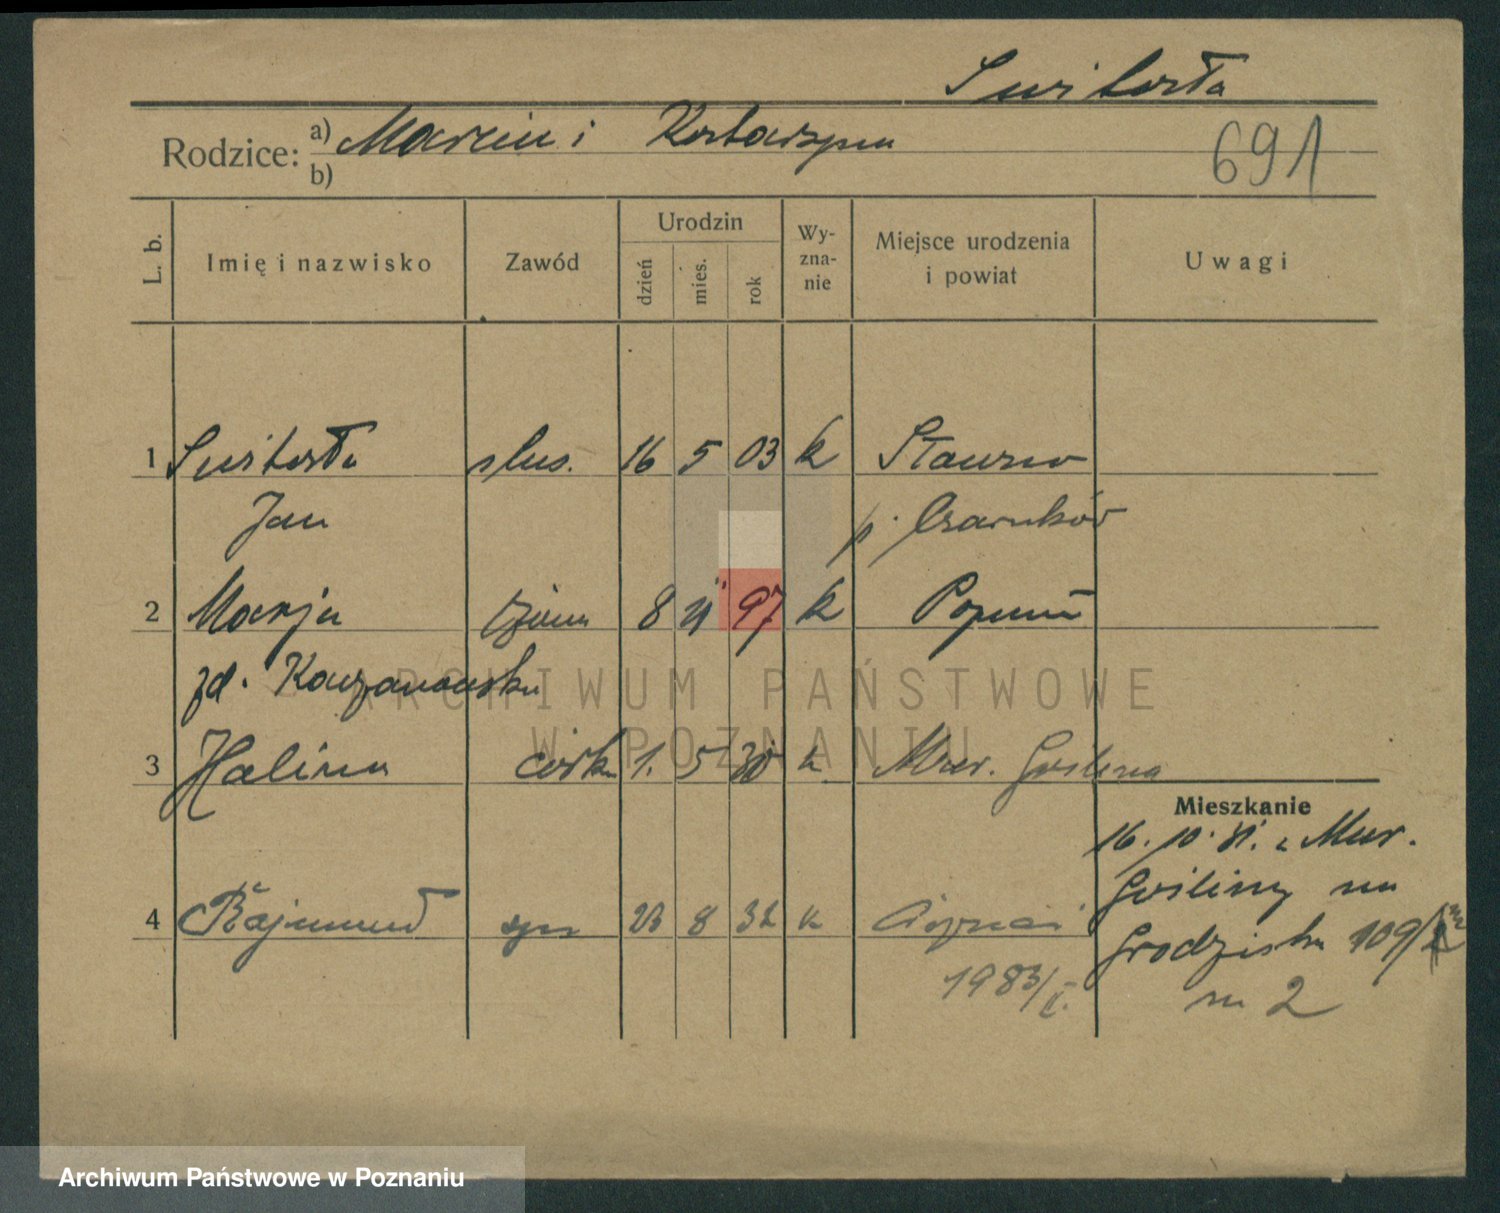 Switorła
Rodzice: a) Marcin i Katarzyna
b)
691
L. b. Imię i nazwisko Zawód Urodzin dzień mies. rok Wy-zna-nie Miejsce urodzenia i powiat Uwagi
1 Switorła ślus. 16 5 03 k
Jan p. Czarnków
2 Marja żona 8 97 k Poznań
zd. Kaczanowska
3 Halina córka 1. 5 30 k Mur. Goślina
Mieszkanie
16. 10. 31. z Mur.
Gośliny na
4 Rajmund syn 23 8 32 k Poznań
Grodziska 109/
1983/II.
m 2
ARCHIWUM PAŃSTWOWE
W POZNANIU
Archiwum Państwowe w Poznaniu